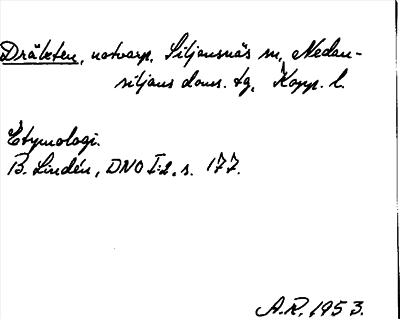 Dräkten, notvarp, Siljansnäs sn, Nedan-
siljans doms. tg, Kopp. l.
Etymologi.
B. Lindén, DNO I:2, s. 177.
A.R. 1953.